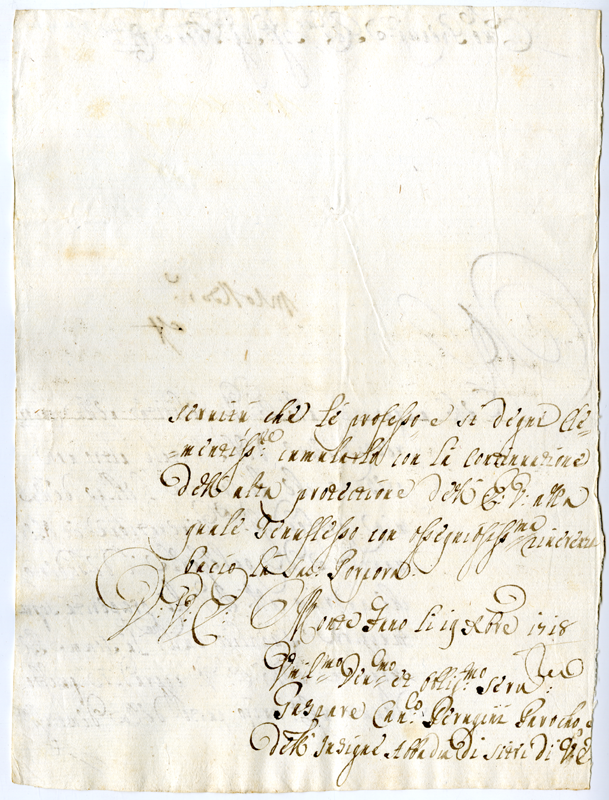 servitù che le professo e si degni Cle-
mentiss.te cumularla con la continuatione
dell'alta protectione dell'E. V. alla
quale genuflesso con ossequiosiss.mo
bacio la Sac. Porpora.
D. V. E. Monte Fano li 19 Xbre 1718
Umil.mo Dev.mo et Obblig.mo Serv.
Gaspare Can.co Perugini Parocho
dell'Insigne Abbadia di